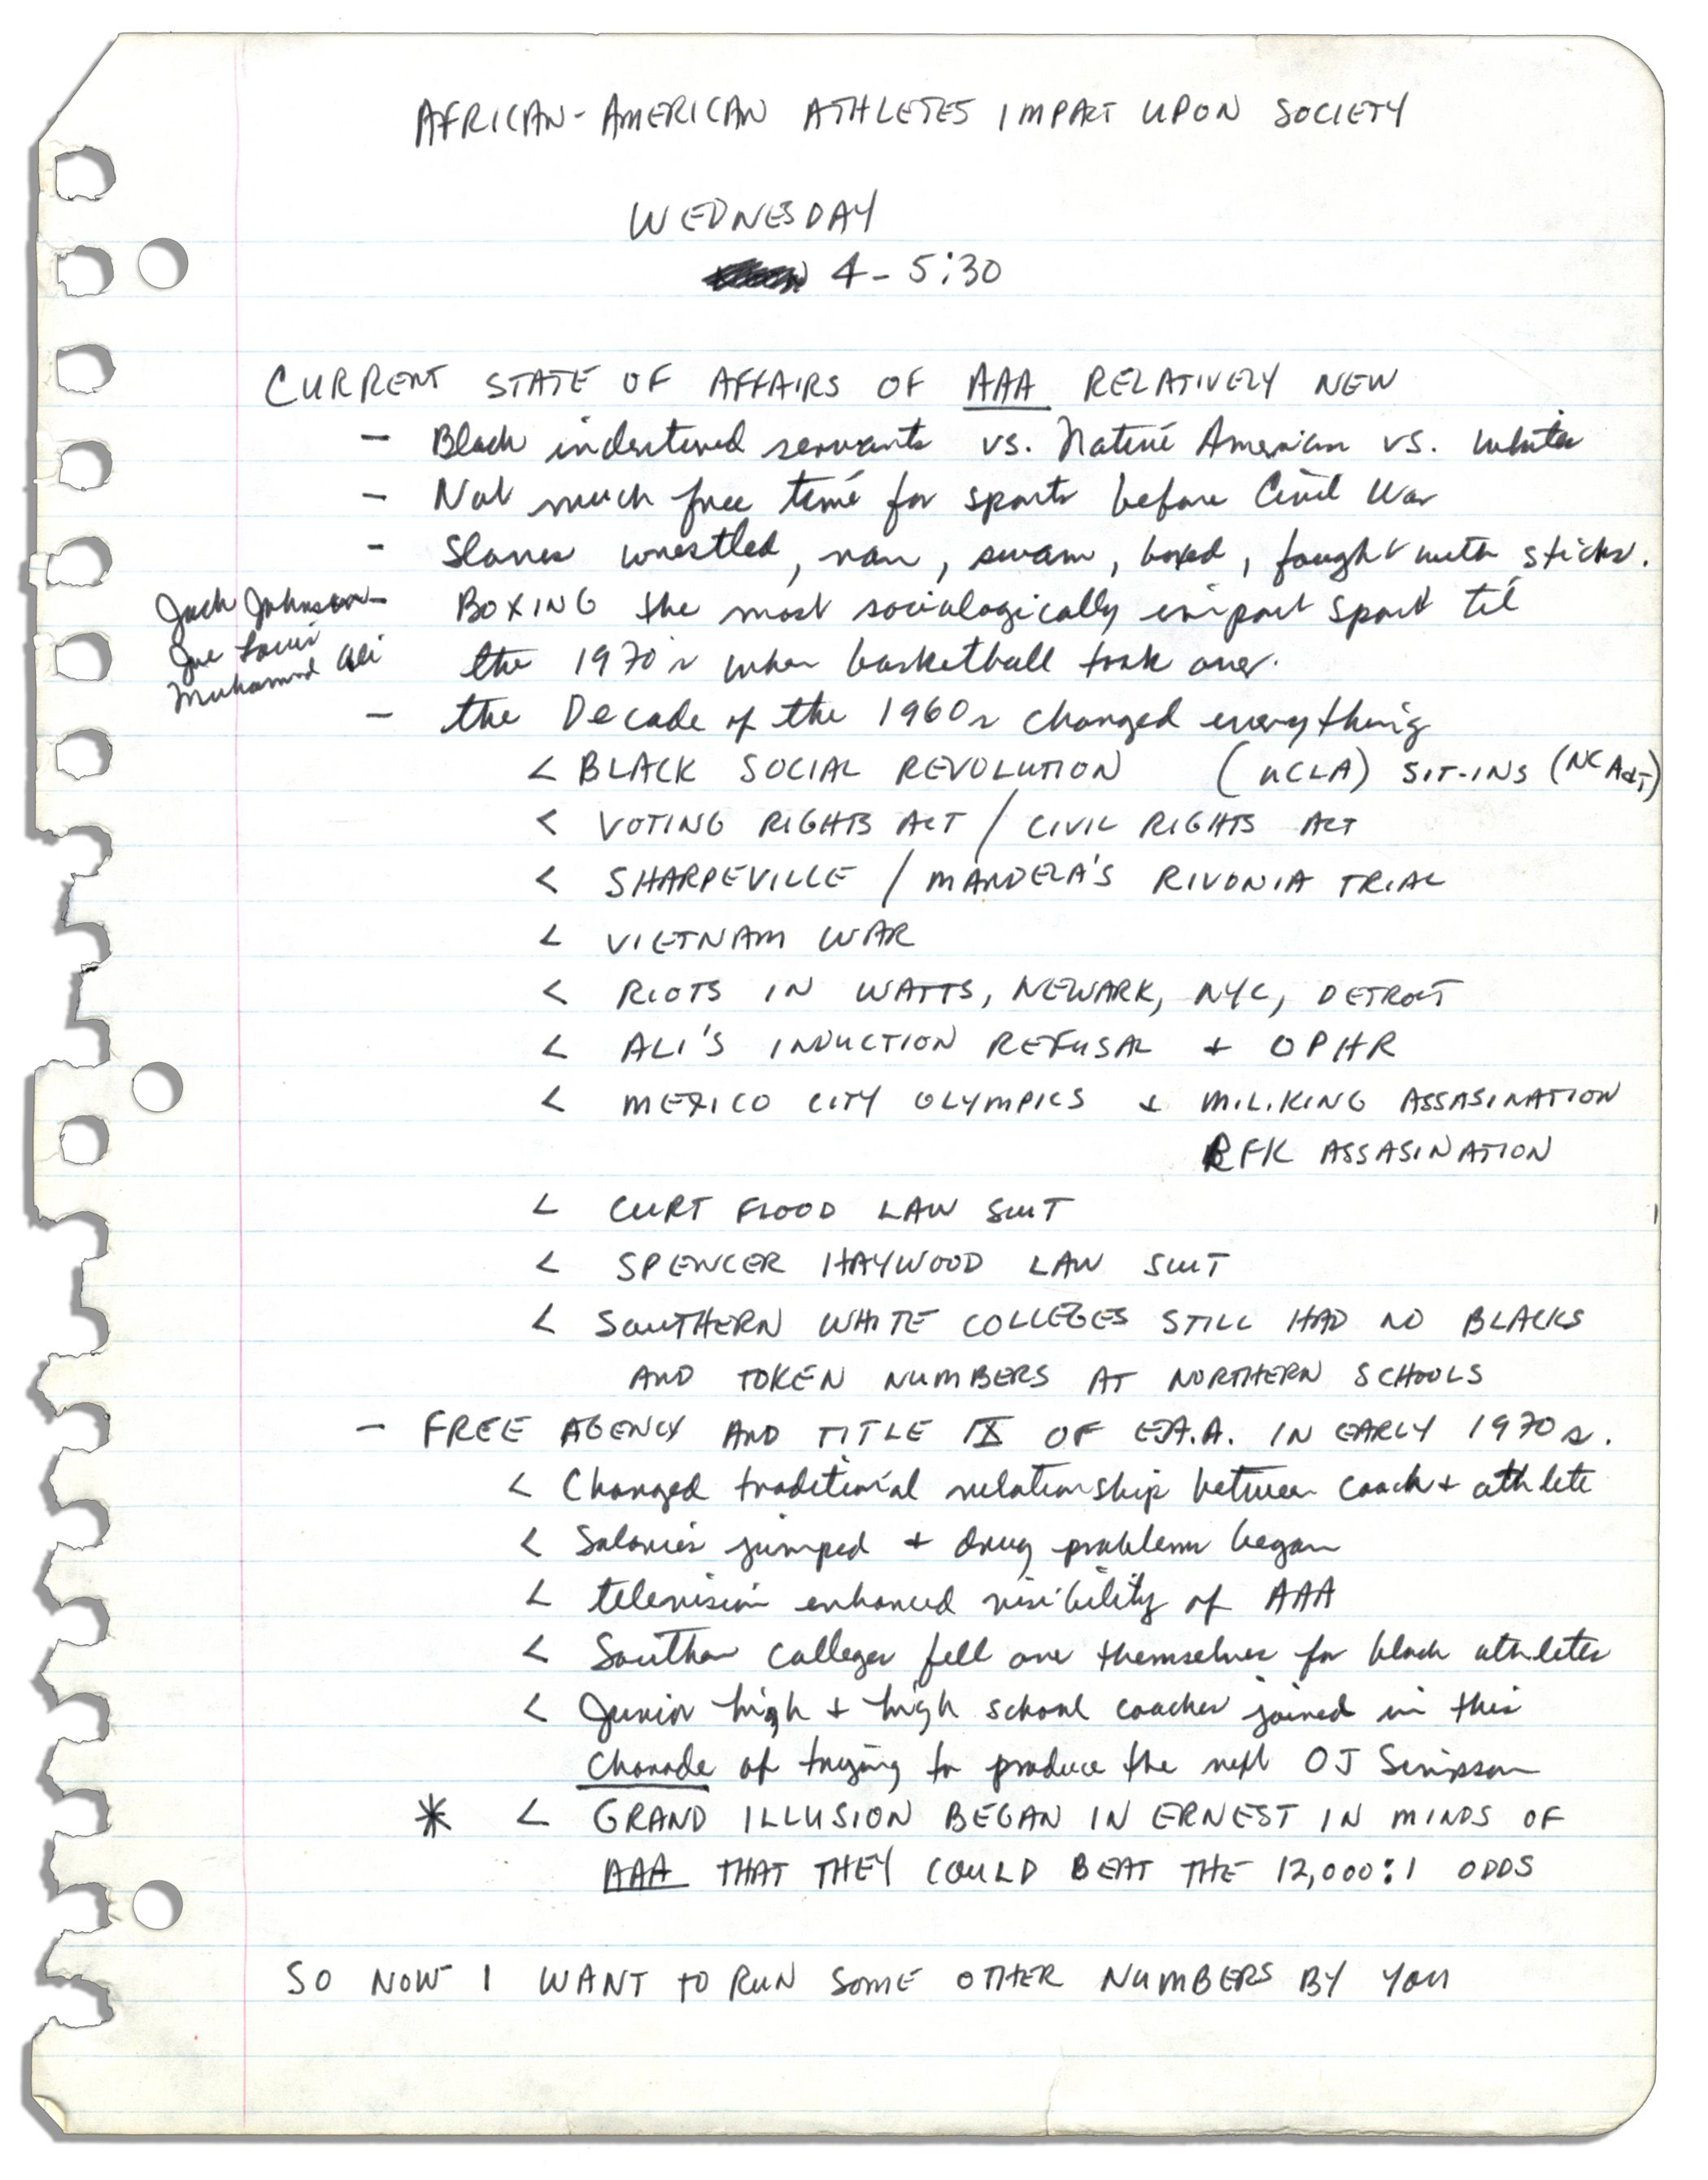 AFRICAN-AMERICAN ATHLETES IMPACT UPON SOCIETY
WEDNESDAY
4-5:30
CURRENT STATE OF AFFAIRS OF AAA RELATIVELY NEW
- Black indentured servants vs. Native American vs. whites
- Not much free time for sports before Civil War
- Slaves wrestled, ran, swam, boxed, fought with sticks.
Jack Johnson - BOXING the most sociologically import sport til
Joe Louis
Muhammad Ali
the 1970's when basketball took over.
- the Decade of the 1960s changed everything
< BLACK SOCIAL REVOLUTION (UCLA) SIT-INS (NC A&T)
< VOTING RIGHTS ACT / CIVIL RIGHTS ACT
< SHARPEVILLE / MANDELA'S RIVONIA TRIAL
< VIETNAM WAR
< RIOTS IN WATTS, NEWARK, NYC, DETROIT
< ALI'S INDUCTION REFUSAL + OPHR
< MEXICO CITY OLYMPICS + M.L.KING ASSASINATION
RFK ASSASINATION
< CURT FLOOD LAW SUIT
< SPENCER HAYWOOD LAW SUIT
< SOUTHERN WHITE COLLEGES STILL HAD NO BLACKS
AND TOKEN NUMBERS AT NORTHERN SCHOOLS
- FREE AGENCY AND TITLE IX OF E.A.A. IN EARLY 1970s.
< Changed traditional relationship between coach + athlete
< Salaries jumped + drug problems began
< television enhanced visibility of AAA
< Southern Colleges fell over themselves for black athletes
< Junior high + high school coaches joined in this
Charade of trying to produce the next OJ Simpson
* < GRAND ILLUSION BEGAN IN ERNEST IN MINDS OF
AAA THAT THEY COULD BEAT THE 12,000:1 ODDS
SO NOW I WANT TO RUN SOME OTHER NUMBERS BY YOU